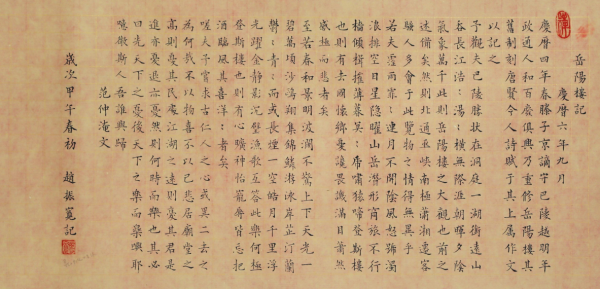 岳陽樓記
慶曆六年九月
慶曆四年春滕子京謫守巴陵越明年
政通人和百廢俱興乃重修岳陽樓其
舊制刻唐賢今人詩賦于其上屬作文
以記之
予觀夫巴陵勝狀在洞庭一湖銜遠山
吞長江浩:湯:橫無際涯朝暉夕陰
氣象萬千此則岳陽樓之大觀也前之
述備矣然則北通巫峽南極瀟湘遷客
騷人多會于此覽物之情得無異乎
若夫霪雨霏:連月不開陰風怒號濁
浪排空日星隱曜山岳潛形商旅不行
檣傾楫摧薄暮冥:虎嘯猿啼登斯樓
也則有去國懷鄉憂讒畏譏滿目蕭然
感極而悲者矣
至若春和景明波瀾不驚上下天光一
碧萬頃沙鷗翔集錦鱗游泳岸芷汀蘭
鬱:青:而或長煙一空皓月千里浮
光躍金靜影沉璧漁歌互答此樂何極
登斯樓也則有心曠神怡寵辱皆忘把
酒臨風其喜洋:者矣
嗟夫予嘗求古仁人之心或異二者之
為何哉不以物喜不以己悲居廟堂之
高則憂其民處江湖之遠則憂其君是
進亦憂退亦憂然則何時而樂也其必
曰先天下之憂後天下之樂而樂歟耶
噫微斯人吾誰與歸
范仲淹文
歲次甲午春初 趙振寬記